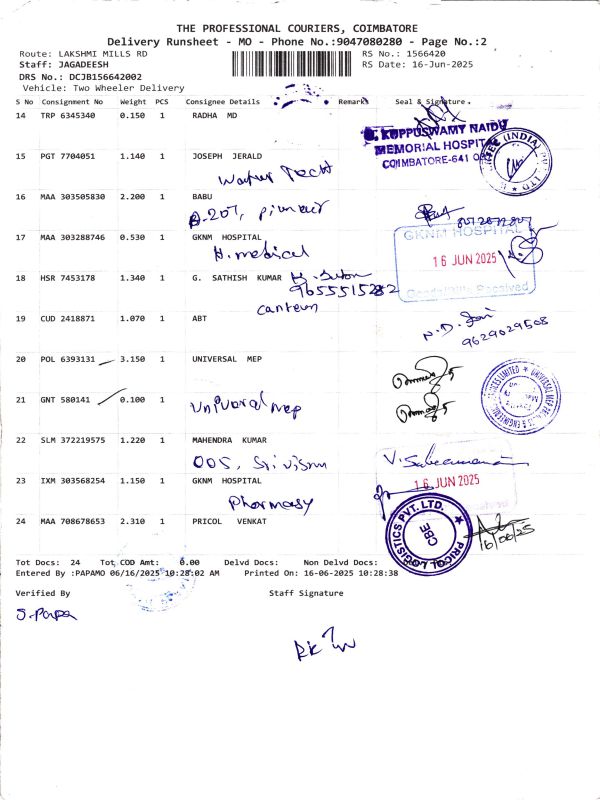 THE PROFESSIONAL COURIERS, COIMBATORE
Delivery Runsheet - MO - Phone No.:9047080280 - Page No.:2
Route: LAKSHMI MILLS RD RS No.: 1566420
Staff: JAGADEESH RS Date: 16-Jun-2025
DRS No.: DCJB156642002
Vehicle: Two Wheeler Delivery
S No Consignment No Weight PCS Consignee Details Remarks Seal & Signature
14 TRP 6345340 0.150 1 RADHA MD
KUPPUSWAMY NAIDU
MEMORIAL HOSPITAL
COIMBATORE-641
15 PGT 7704051 1.140 1 JOSEPH JERALD
16 MAA 303505830 2.200 1 BABU
17 MAA 303288746 0.530 1 GKNM HOSPITAL
H. medical
GKNM HOSPITAL
16 JUN 2025
Received
18 HSR 7453178 1.340 1 G. SATHISH KUMAR
9655515282
canteen
19 CUD 2418871 1.070 1 ABT
9629029508
20 POL 6393131 3.150 1 UNIVERSAL MEP
21 GNT 580141 0.100 1
22 SLM 372219575 1.220 1 MAHENDRA KUMAR
23 IXM 303568254 1.150 1 GKNM HOSPITAL
16 JUN 2025
Pharmasy
24 MAA 708678653 2.310 1 PRICOL VENKAT
PRICOL LOGISTICS PVT. LTD.
CBE
16/06/25
Tot Docs: 24 Tot COD Amt: 0.00 Delvd Docs: Non Delvd Docs:
Entered By :PAPAMO 06/16/2025 10:28:02 AM Printed On: 16-06-2025 10:28:38
Verified By Staff Signature
S. Papa